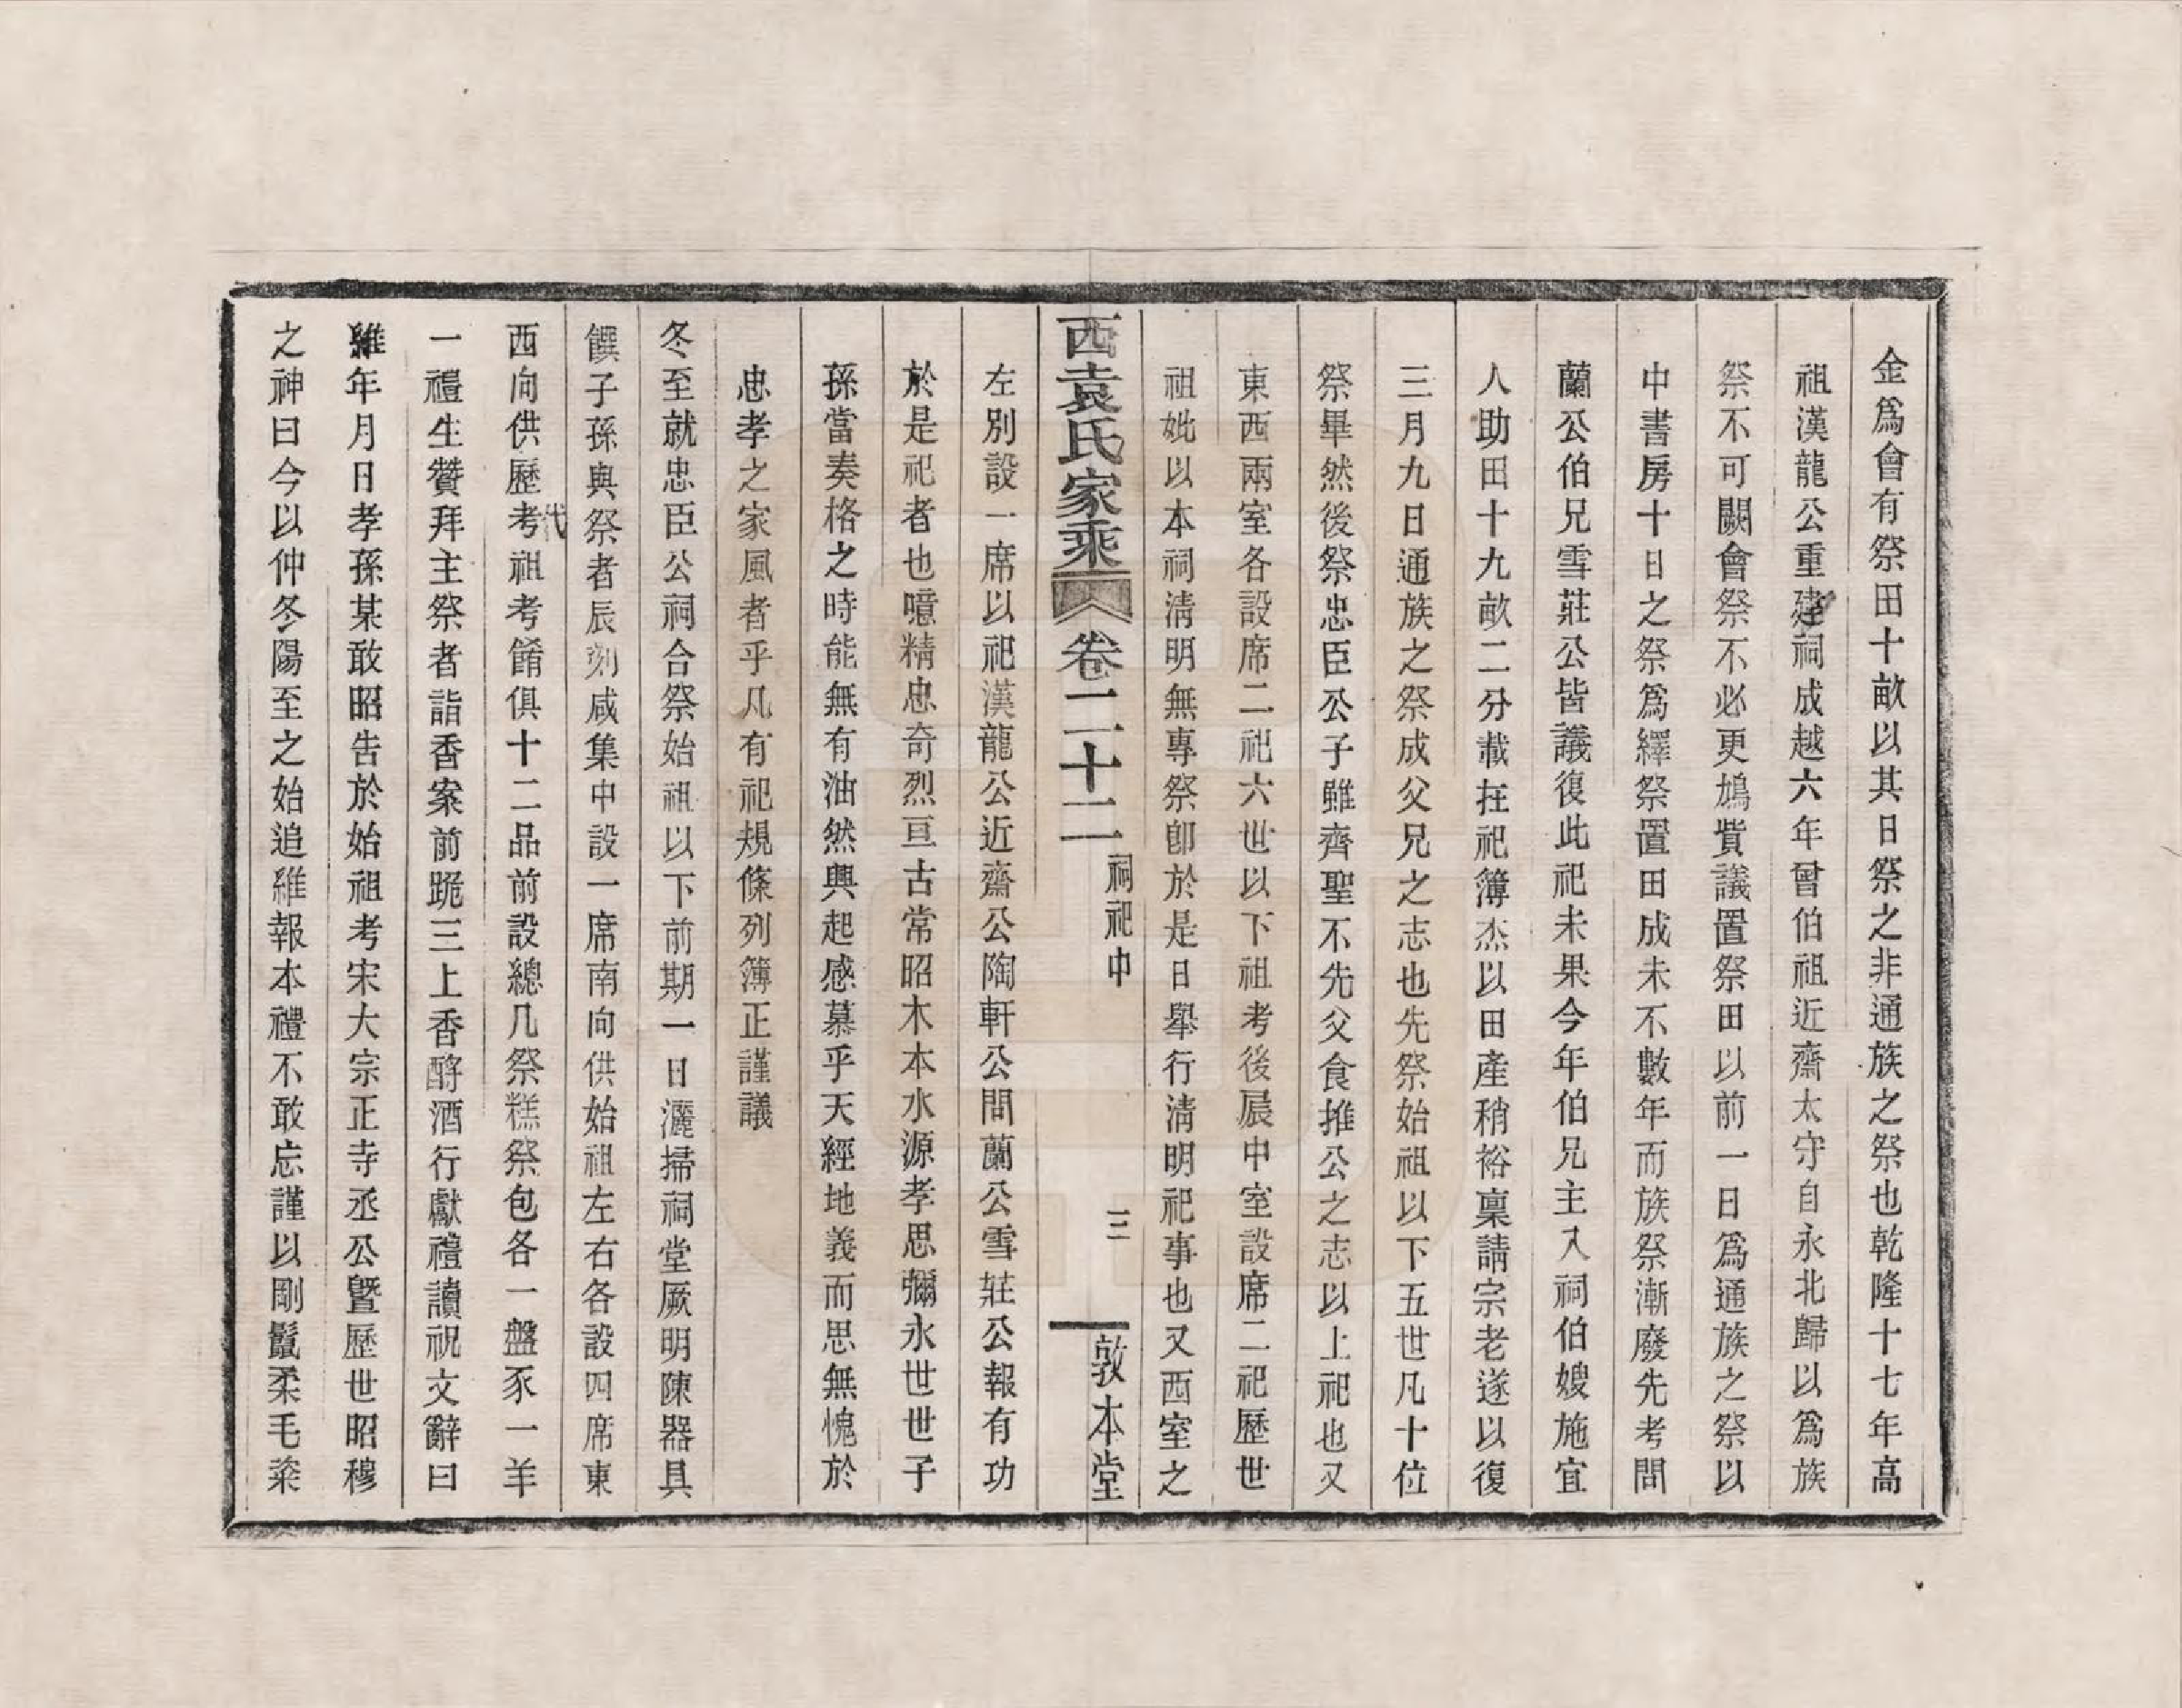 金爲會有祭田十畝以其日祭之非通族之祭也乾隆十七年高
祖漢龍公重建祠成越六年曾伯祖近齋太守自永北歸以爲族
祭不可闕會祭不必更鳩貲議置祭田以前一日爲通族之祭以
中書房十日之祭爲繹祭置田成未不數年而族祭漸廢先考問
蘭公伯兄雪莊公皆議復此祀未果今年伯兄主入祠伯嫂施宜
人助田十九畝二分載在祀簿杰以田產稍裕稟請宗老遂以復
三月九日通族之祭成父兄之志也先祭始祖以下五世凡十位
祭畢然後祭忠臣公子雖齊聖不先父食推公之志以上祀也又
東西兩室各設席二祀六世以下祖考後扆中室設席二祀歷世
祖妣以本祠清明無專祭卽於是日舉行清明祀事也又西室之
西袁氏家乘 卷二十二 祠祀中 三 敦本堂
左別設一席以祀漢龍公近齋公陶軒公問蘭公雪莊公報有功
於是祀者也噫精忠奇烈亘古常昭木本水源孝思彌永世世子
孫當奏格之時能無有油然興起感慕乎天經地義而思無愧於
忠孝之家風者乎凡有祀規條列簿正謹議
冬至就忠臣公祠合祭始祖以下前期一日灑掃祠堂厥明陳器具
饌子孫與祭者辰刻咸集中設一席南向供始祖左右各設四席東
西向供歷代考祖考餚俱十二品前設總几祭糕祭包各一盤豕一羊
一禮生贊拜主祭者詣香案前跪三上香酹酒行獻禮讀祝文辭曰
維年月日孝孫某敢昭告於始祖考宋大宗正寺丞公曁歷世昭穆
之神曰今以仲冬陽至之始追維報本禮不敢忘謹以剛鬣柔毛粢